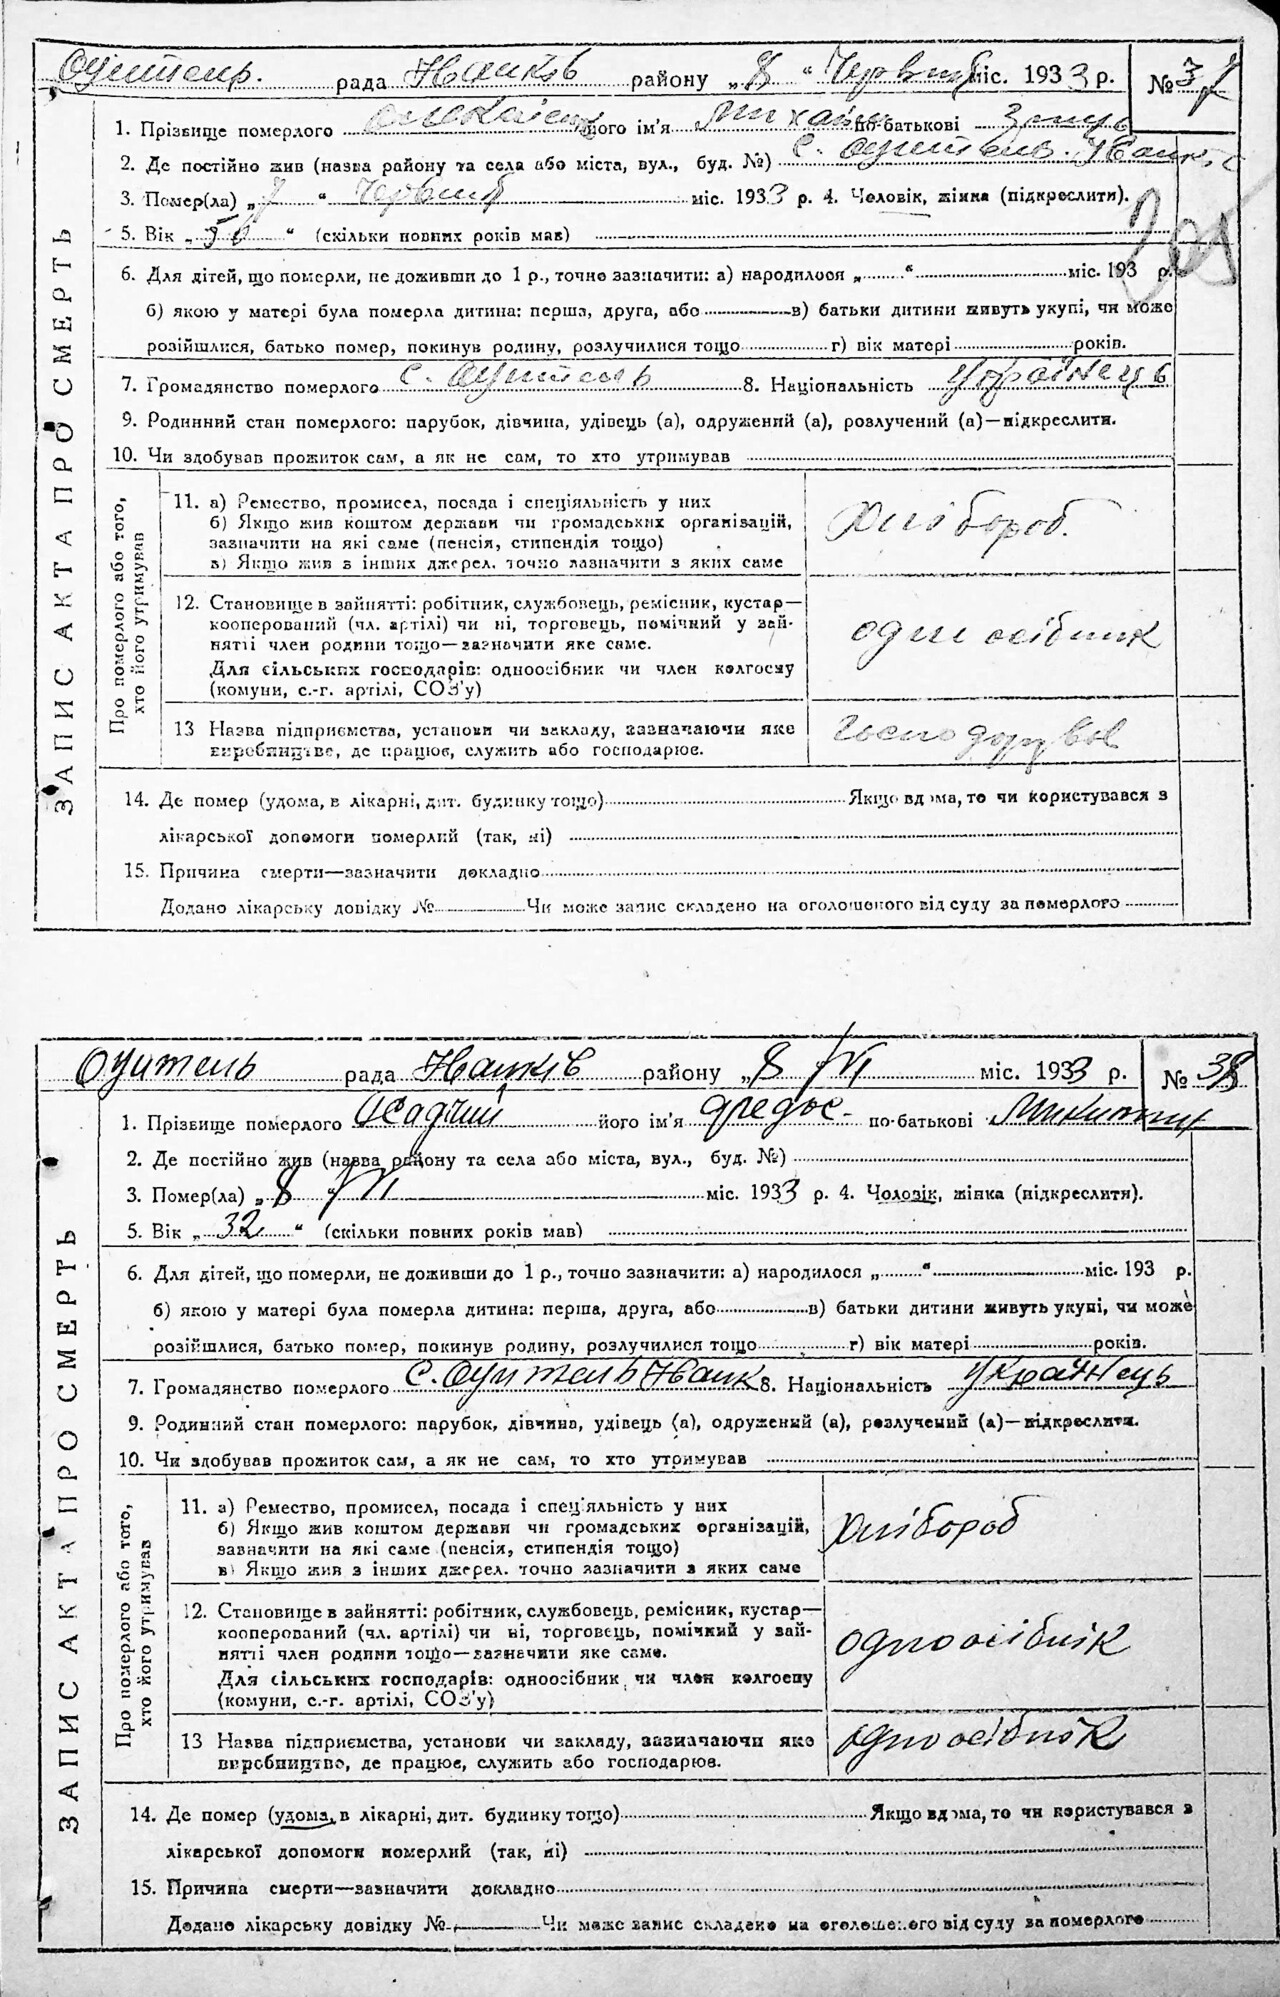 рада Іванків району „ 8 “ Червня міс. 1933 р. № 37
1. Прізвище померлого його ім'я Михайло по-батькові
2. Де постійно жив (назва району та села або міста, вул., буд. №) с.
3. Помер(ла) „ 7 “ Червня міс. 1933 р. 4. Чоловік, жінка (підкреслити).
5. Вік „ “ (скільки повних років мав)
6. Для дітей, що померли, не доживши до 1 р., точно зазначити: а) народилося „ “ міс. 193 р.
б) якою у матері була померла дитина: перша, друга, або в) батьки дитини живуть укупі, чи може
розійшлися, батько помер, покинув родину, розлучилися тощо г) вік матері років.
7. Громадянство померлого с. Оцитель 8. Національність українець
9. Родинний стан померлого: парубок, дівчина, удівець (а), одружений (а), розлучений (а)—підкреслити.
10. Чи здобував прожиток сам, а як не сам, то хто утримував
ЗАПИС АКТА ПРО СМЕРТЬ
Про померлого або того, хто його утримував
11. а) Ремество, промисел, посада і спеціяльність у них
б) Якщо жив коштом держави чи громадських організацій,
зазначити на які саме (пенсія, стипендія тощо)
в) Якщо жив з інших джерел, точно зазначити з яких саме
хлібороб.
12. Становище в зайнятті: робітник, службовець, ремісник, кустар—
кооперований (чл. артілі) чи ні, торговець, помічний у зай-
нятті член родини тощо—зазначити яке саме.
Для сільських господарів: одноосібник чи член колгоспу
(комуни, с.-г. артілі, СОЗ'у)
13 Назва підприємства, установи чи закладу, зазначаючи яке
виробництво, де працює, служить або господарює.
14. Де помер (удома, в лікарні, дит. будинку тощо) Якщо вдома, то чи користувався з
лікарської допомоги померлий (так, ні)
15. Причина смерти—зазначити докладно
Додано лікарську довідку № Чи може запис складено на оголошеного від суду за померлого
Оцитель рада Іванків району „ 8 “ VI міс. 1933 р. № 38
1. Прізвище померлого Осадчий його ім'я Федос по-батькові Микитин
2. Де постійно жив (назва району та села або міста, вул., буд. №)
3. Помер(ла) „ 8 “ VI міс. 1933 р. 4. Чоловік, жінка (підкреслити).
5. Вік „ 32 “ (скільки повних років мав)
6. Для дітей, що померли, не доживши до 1 р., точно зазначити: а) народилося „ “ міс. 193 р.
б) якою у матері була померла дитина: перша, друга, або в) батьки дитини живуть укупі, чи може
розійшлися, батько помер, покинув родину, розлучилися тощо г) вік матері років.
7. Громадянство померлого с. Оцитель Іванк 8. Національність українець
9. Родинний стан померлого: парубок, дівчина, удівець (а), одружений (а), розлучений (а)—підкреслити.
10. Чи здобував прожиток сам, а як не сам, то хто утримував
ЗАПИС АКТА ПРО СМЕРТЬ
Про померлого або того, хто його утримував
11. а) Ремество, промисел, посада і спеціяльність у них
б) Якщо жив коштом держави чи громадських організацій,
зазначити на які саме (пенсія, стипендія тощо)
в) Якщо жив з інших джерел, точно зазначити з яких саме
хлібороб
12. Становище в зайнятті: робітник, службовець, ремісник, кустар—
кооперований (чл. артілі) чи ні, торговець, помічний у зай-
нятті член родини тощо—зазначити яке саме.
Для сільських господарів: одноосібник чи член колгоспу
(комуни, с.-г. артілі, СОЗ'у)
одноосібнік
13 Назва підприємства, установи чи закладу, зазначаючи яке
виробництво, де працює, служить або господарює.
одноосібнік
14. Де помер (удома, в лікарні, дит. будинку тощо) Якщо вдома, то чи користувався з
лікарської допомоги померлий (так, ні)
15. Причина смерти—зазначити докладно
Додано лікарську довідку № Чи може запис складено на оголошеного від суду за померлого